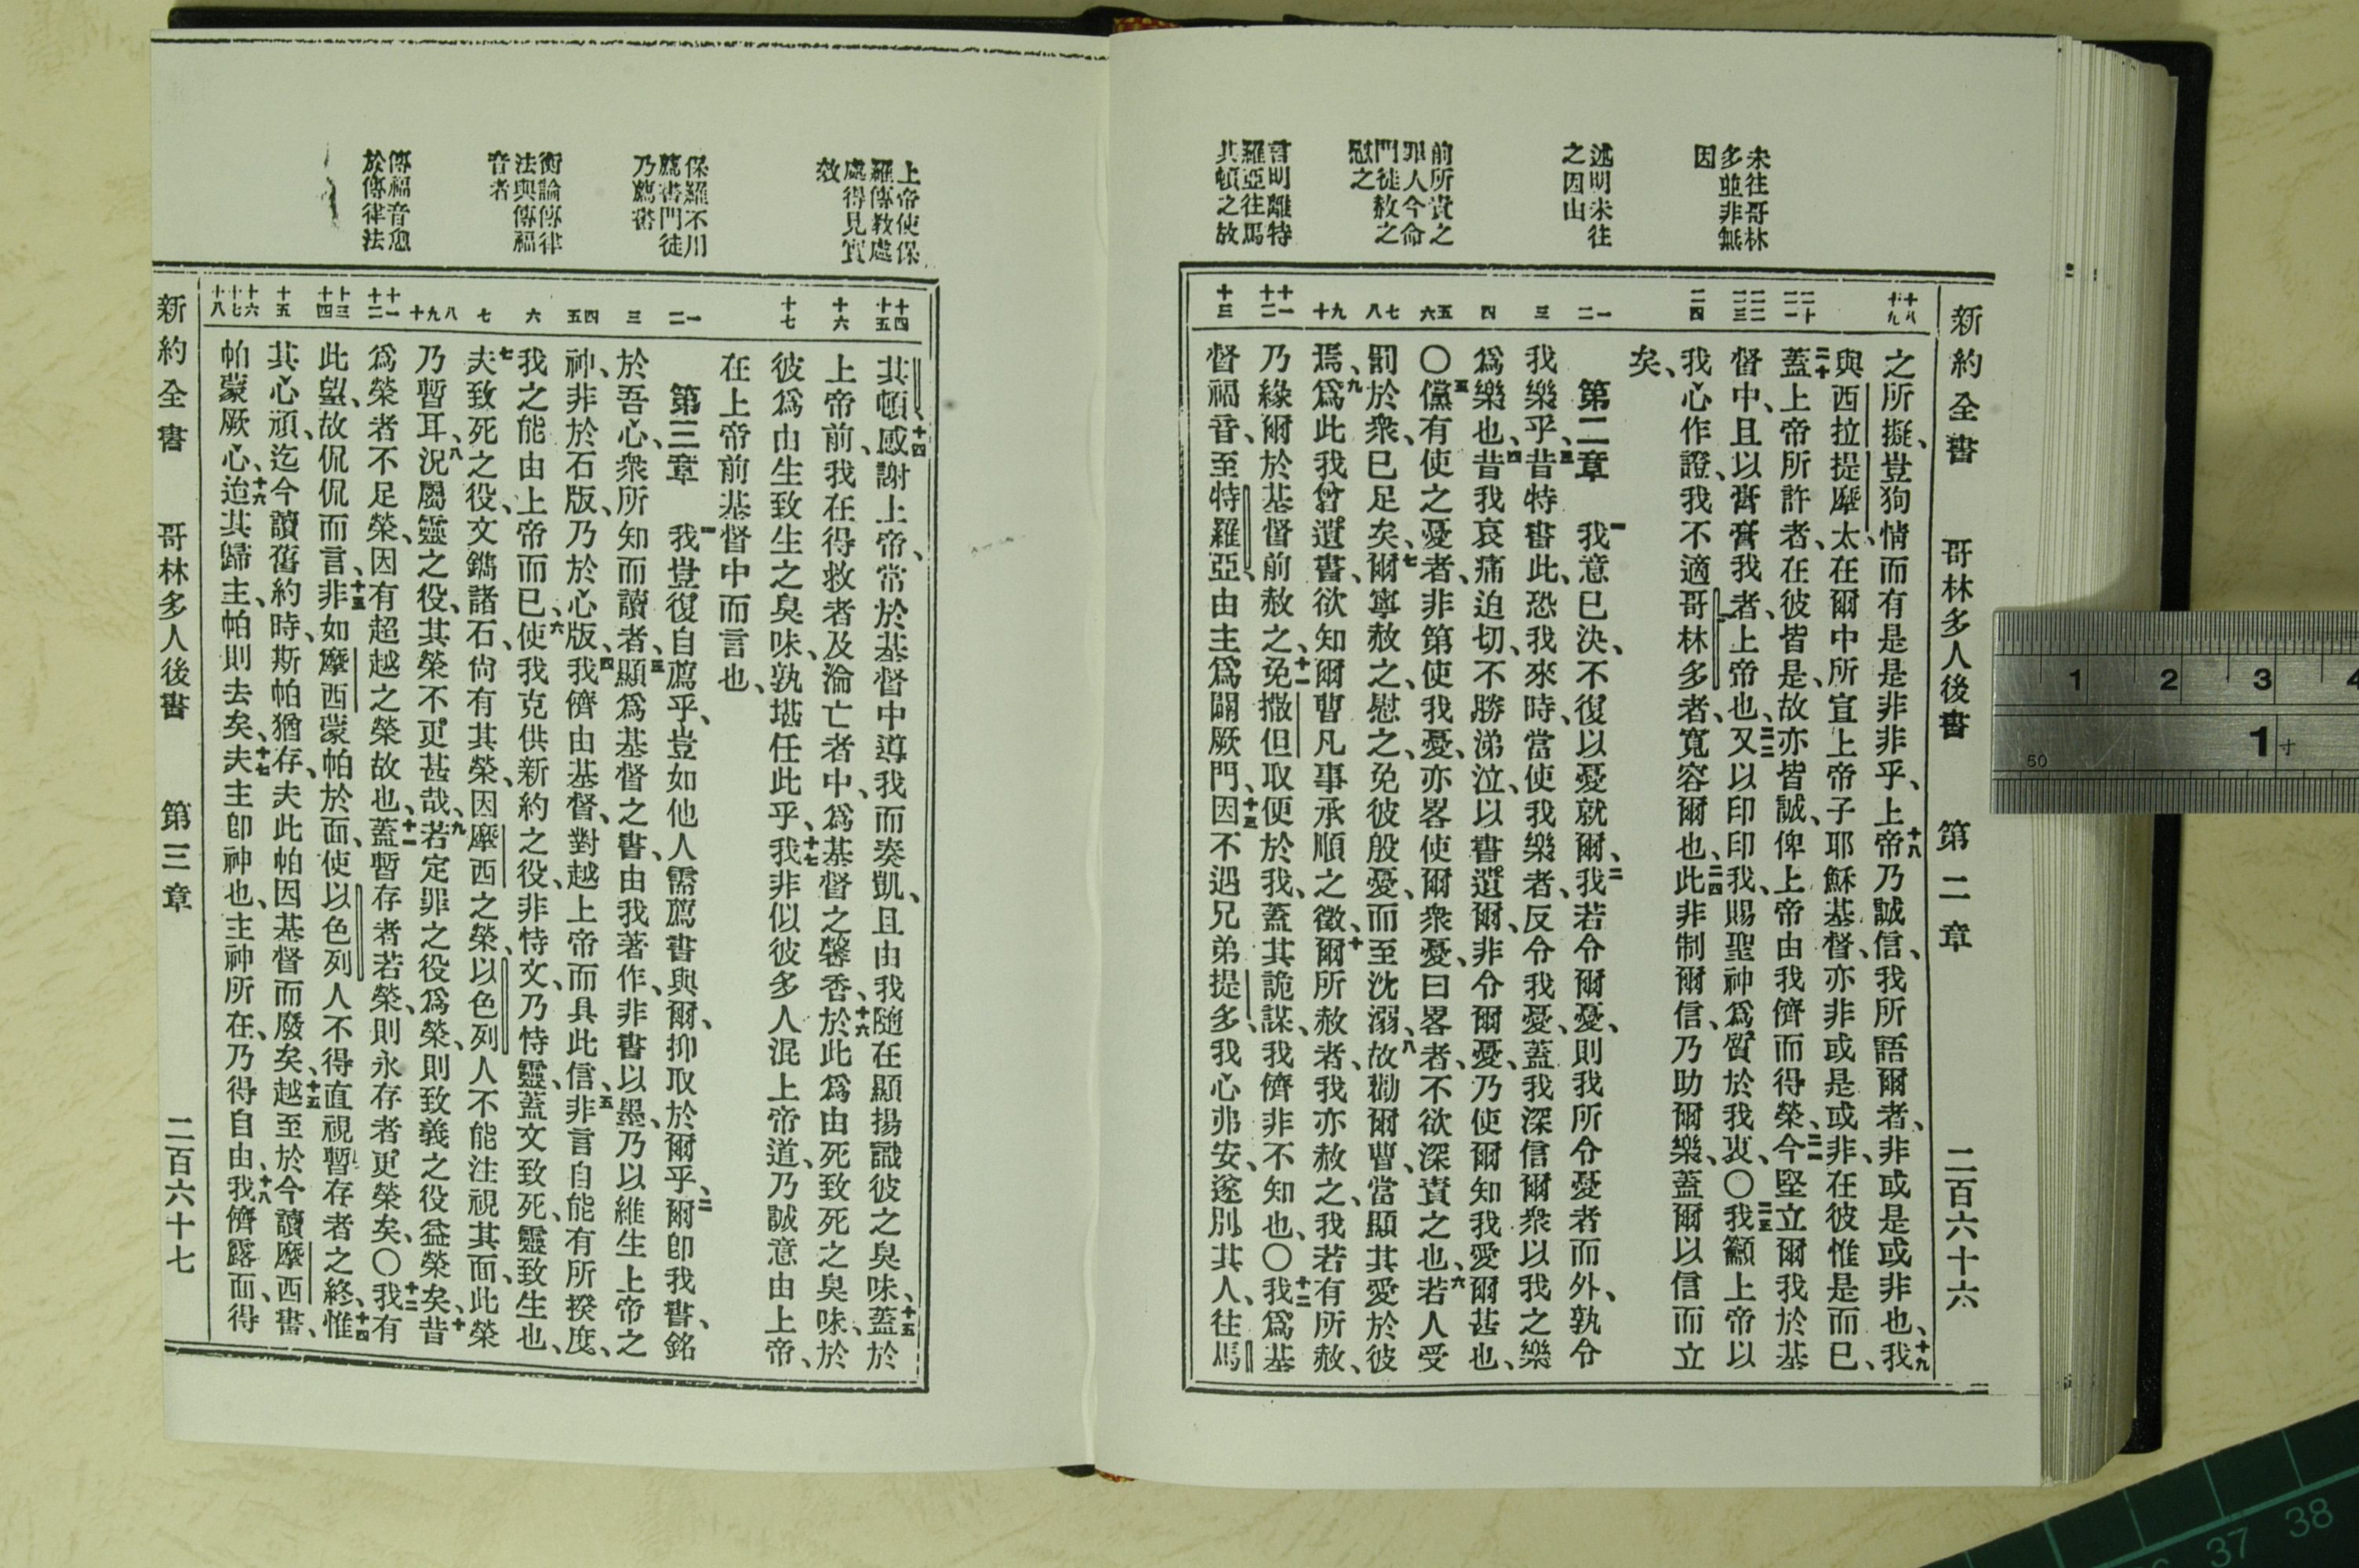 新約全書 哥林多人後書 第二章 二百六十六
未往哥林
多並非無
因
述明未往
之因由
前所責之
罪人今命
門徒赦之
慰之
言明離特
羅亞往馬
其頓之故
十八 十九
二十 二一
二二 二三
二四
一 二
三
四
五 六
七 八
九 十
十一 十二
十三
之所擬、豈狥情而有是是非非乎、十八上帝乃誠信、我所語爾者、非或是或非也、十九我
與西拉提摩太、在爾中所宣上帝子耶穌基督、亦非或是或非、在彼惟是而已、
二十蓋上帝所許者、在彼皆是、故亦皆誠、俾上帝由我儕而得榮、二一今堅立爾我於基
督中、且以膏膏我者、上帝也、二二又以印印我、賜聖神爲質於我衷、〇二三我籲上帝以
我心作證、我不適哥林多者、寬容爾也、二四此非制爾信、乃助爾樂、蓋爾以信而立
矣、
第二章 一我意已決、不復以憂就爾、二我若令爾憂、則我所令憂者而外、孰令
我樂乎、三昔特書此、恐我來時、當使我樂者、反令我憂、蓋我深信爾衆以我之樂
爲樂也、四昔我哀痛迫切、不勝涕泣、以書遺爾、非令爾憂、乃使爾知我愛爾甚也、
〇五儻有使之憂者、非第使我憂、亦畧使爾衆憂、曰畧者、不欲深責之也、六若人受
罰於衆、已足矣、七爾寧赦之、慰之、免彼殷憂、而至沈溺、八故勸爾曹、當顯其愛於彼
焉、九爲此我曾遺書、欲知爾曹凡事承順之徵、十爾所赦者、我亦赦之、我若有所赦、
乃緣爾於基督前赦之、十一免撒但取便於我、蓋其詭謀、我儕非不知也、〇十二我爲基
督福音、至特羅亞、由主爲闢厥門、十三因不遇兄弟提多、我心弗安、遂別其人、往馬
上帝使保
羅傳教處
處得見實
效
保羅不用
薦書門徒
乃薦書
衡論傳律
法與傳福
音者
傳福音愈
於傳律法
十四 十五
十六
十七
一 二
三
四 五
六
七
八 九 十
十一 十二
十三 十四
十五
十六 十七 十八
其頓、十四感謝上帝、常於基督中導我而奏凱、且由我隨在顯揚識彼之臭味、十五蓋於
上帝前、我在得救者及淪亡者中、爲基督之馨香、十六於此爲由死致死之臭味、於
彼爲由生致生之臭味、孰堪任此乎、十七我非似彼多人混上帝道、乃誠意由上帝、
在上帝前基督中而言也、
第三章 一我豈復自薦乎、豈如他人需薦書與爾、抑取於爾乎、二爾卽我書、銘
於吾心、衆所知而讀者、三顯爲基督之書、由我著作、非書以墨、乃以維生上帝之
神、非於石版、乃於心版、四我儕由基督、對越上帝而具此信、五非言自能有所揆度、
我之能由上帝而已、六使我克供新約之役、非恃文、乃恃靈、蓋文致死、靈致生也、
七夫致死之役、文鐫諸石、尙有其榮、因摩西之榮、以色列人不能注視其面、此榮
乃暫耳、八況屬靈之役、其榮不更甚哉、九若定罪之役爲榮、則致義之役益榮矣、十昔
爲榮者不足榮、因有超越之榮故也、十一蓋暫存者若榮、則永存者更榮矣、〇十二我有
此望、故侃侃而言、十三非如摩西蒙帕於面、使以色列人不得直視暫存者之終、十四惟
其心頑、迄今讀舊約時、斯帕猶存、夫此帕因基督而廢矣、十五越至於今讀摩西書、
帕蒙厥心、十六迨其歸主、帕則去矣、十七夫主卽神也、主神所在、乃得自由、十八我儕露面、得
新約全書 哥林多人後書 第三章 二百六十七
1 2 3 4
50 1寸
37 38